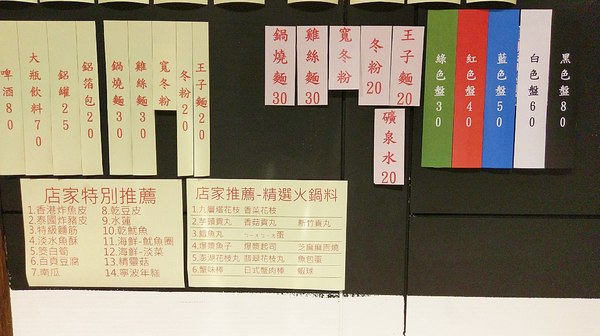 啤酒80
大瓶飲料70
鋁罐25
鋁箔包20
鍋燒麵30
雞絲麵30
寬冬粉
冬粉20
王子麵20
鍋燒麵30
雞絲麵30
寬冬粉
冬粉20
王子麵20
礦泉水20
綠色盤30
紅色盤40
藍色盤50
白色盤60
黑色盤80
店家特別推薦
1.香港炸魚皮 8.乾豆皮
2.泰國炸豬皮 9.水蓮
3.特級麵筋 10.乾魷魚
4.淡水魚酥 11.海鮮-魷魚圈
5.筊白筍 12.海鮮-淡菜
6.百頁豆腐 13.精靈菇
7.南瓜 14.寧波年糕
店家推薦-精選火鍋料
1.九層塔花枝 香菜花枝
2.芋頭貢丸 香菇貢丸 新竹貢丸
3.鱈魚丸
4.爆漿魚子 爆漿起司 芝麻麻吉燒
5.澎湖花枝丸 翡翠花枝丸 魚包蛋
6.蟹味棒 日式蟹肉棒 蝦球